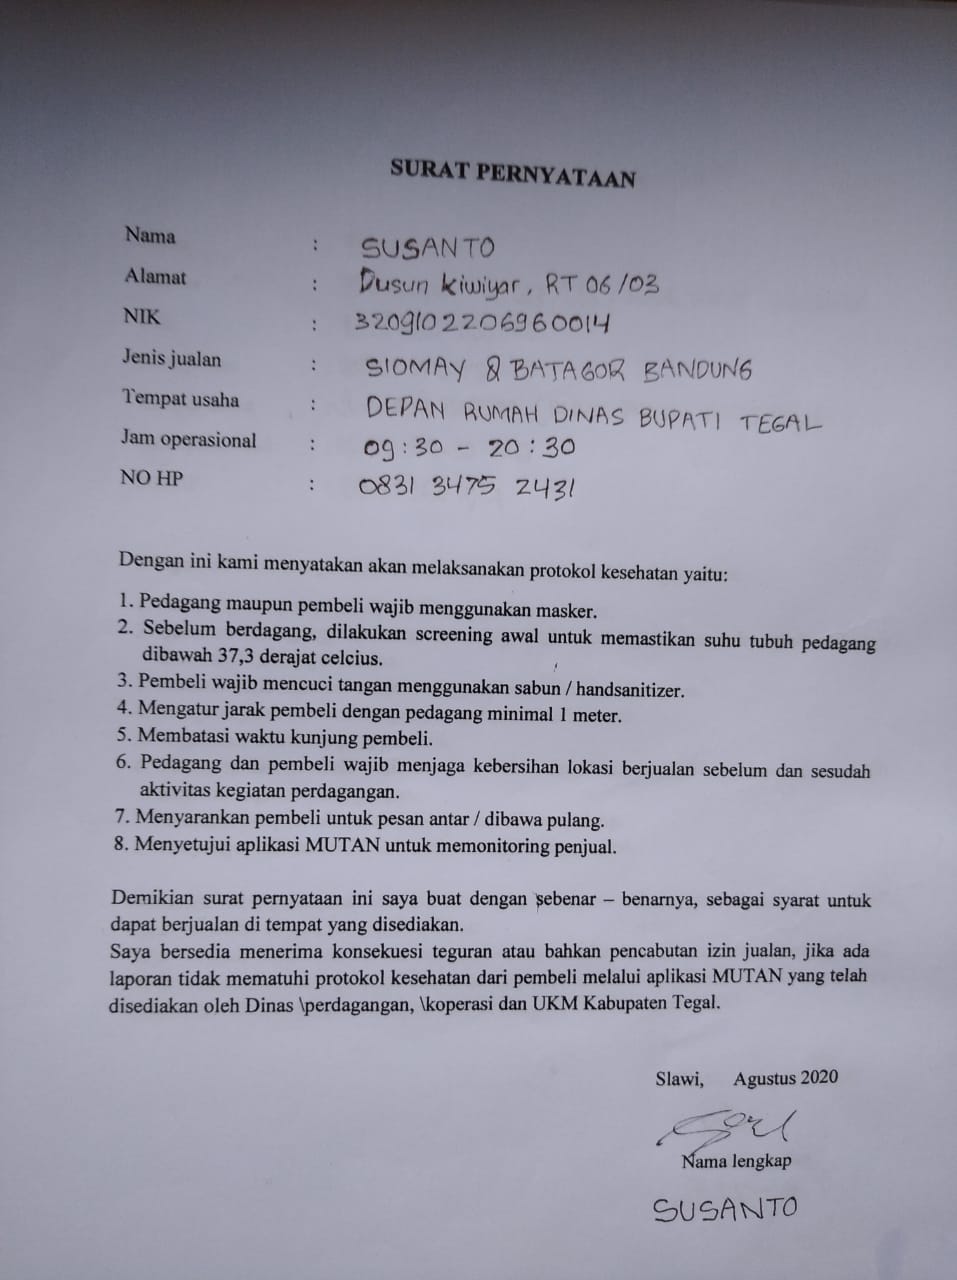 SURAT PERNYATAAN
Nama : SUSANTO
Alamat : Dusun Kiwiyar, RT 06/03
NIK : 3209102206960014
Jenis jualan : SIOMAY & BATAGOR BANDUNG
Tempat usaha : DEPAN RUMAH DINAS BUPATI TEGAL
Jam operasional : 09:30 - 20:30
NO HP : 0831 3475 2431
Dengan ini kami menyatakan akan melaksanakan protokol kesehatan yaitu:
1. Pedagang maupun pembeli wajib menggunakan masker.
2. Sebelum berdagang, dilakukan screening awal untuk memastikan suhu tubuh pedagang
dibawah 37,3 derajat celcius.
3. Pembeli wajib mencuci tangan menggunakan sabun / handsanitizer.
4. Mengatur jarak pembeli dengan pedagang minimal 1 meter.
5. Membatasi waktu kunjung pembeli.
6. Pedagang dan pembeli wajib menjaga kebersihan lokasi berjualan sebelum dan sesudah
aktivitas kegiatan perdagangan.
7. Menyarankan pembeli untuk pesan antar / dibawa pulang.
8. Menyetujui aplikasi MUTAN untuk memonitoring penjual.
Demikian surat pernyataan ini saya buat dengan sebenar – benarnya, sebagai syarat untuk
dapat berjualan di tempat yang disediakan.
Saya bersedia menerima konsekuesi teguran atau bahkan pencabutan izin jualan, jika ada
laporan tidak mematuhi protokol kesehatan dari pembeli melalui aplikasi MUTAN yang telah
disediakan oleh Dinas \perdagangan, \koperasi dan UKM Kabupaten Tegal.
Slawi, Agustus 2020
Nama lengkap
SUSANTO